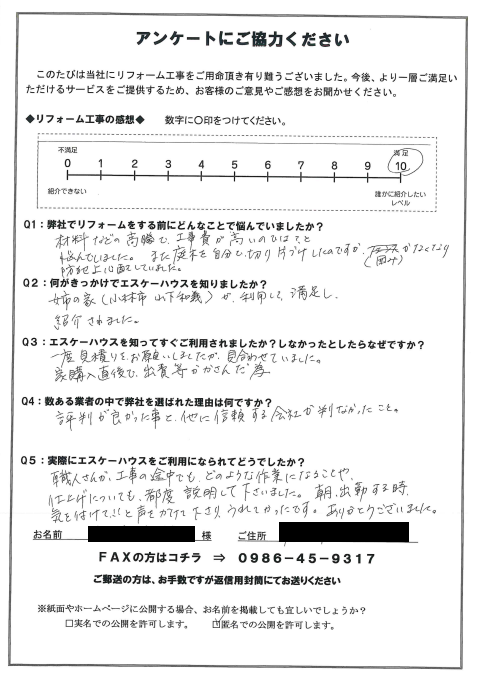 アンケートにご協力ください
このたびは当社にリフォーム工事をご用命頂き有り難うございました。今後、より一層ご満足い
ただけるサービスをご提供するため、お客様のご意見やご感想をお聞かせください。
◆リフォーム工事の感想◆ 数字に〇印をつけてください。
不満足 満足
0 1 2 3 4 5 6 7 8 9 10
紹介できない 誰かに紹介したい
レベル
Q1：弊社でリフォームをする前にどんなことで悩んでいましたか？
材料などの高騰で、工事費が高いのでは？と
悩んでいました。また庭木を自分で切り片づけしたのですが、がなくなり
(囲み)
防犯上心配していました。
Q2：何がきっかけでエスケーハウスを知りましたか？
姉の家(小林市 山下和義)が、利用して満足し、
紹介されました。
Q3：エスケーハウスを知ってすぐご利用されましたか？しなかったとしたらなぜですか？
一度見積りをお願いしましたが、見合わせていました。
家購入直後で、出費等がかさんだ為
Q4：数ある業者の中で弊社を選ばれた理由は何ですか？
評判が良かった事と、他に信頼する会社が判なかったこと。
Q5：実際にエスケーハウスをご利用になられてどうでしたか？
職人さんが、工事の途中でも、どのような作業になることや、
仕上げについても、都度説明して下さいました。朝、出勤する時、
気を付けてと声をかけて下さり、うれしかったです。ありがとうございました。
お名前 様 ご住所
FAXの方はコチラ ⇒ 0986－45－9317
ご郵送の方は、お手数ですが返信用封筒にてお送りください
※紙面やホームページに公開する場合、お名前を掲載しても宜しいでしょうか？
□実名での公開を許可します。 ☑匿名での公開を許可します。